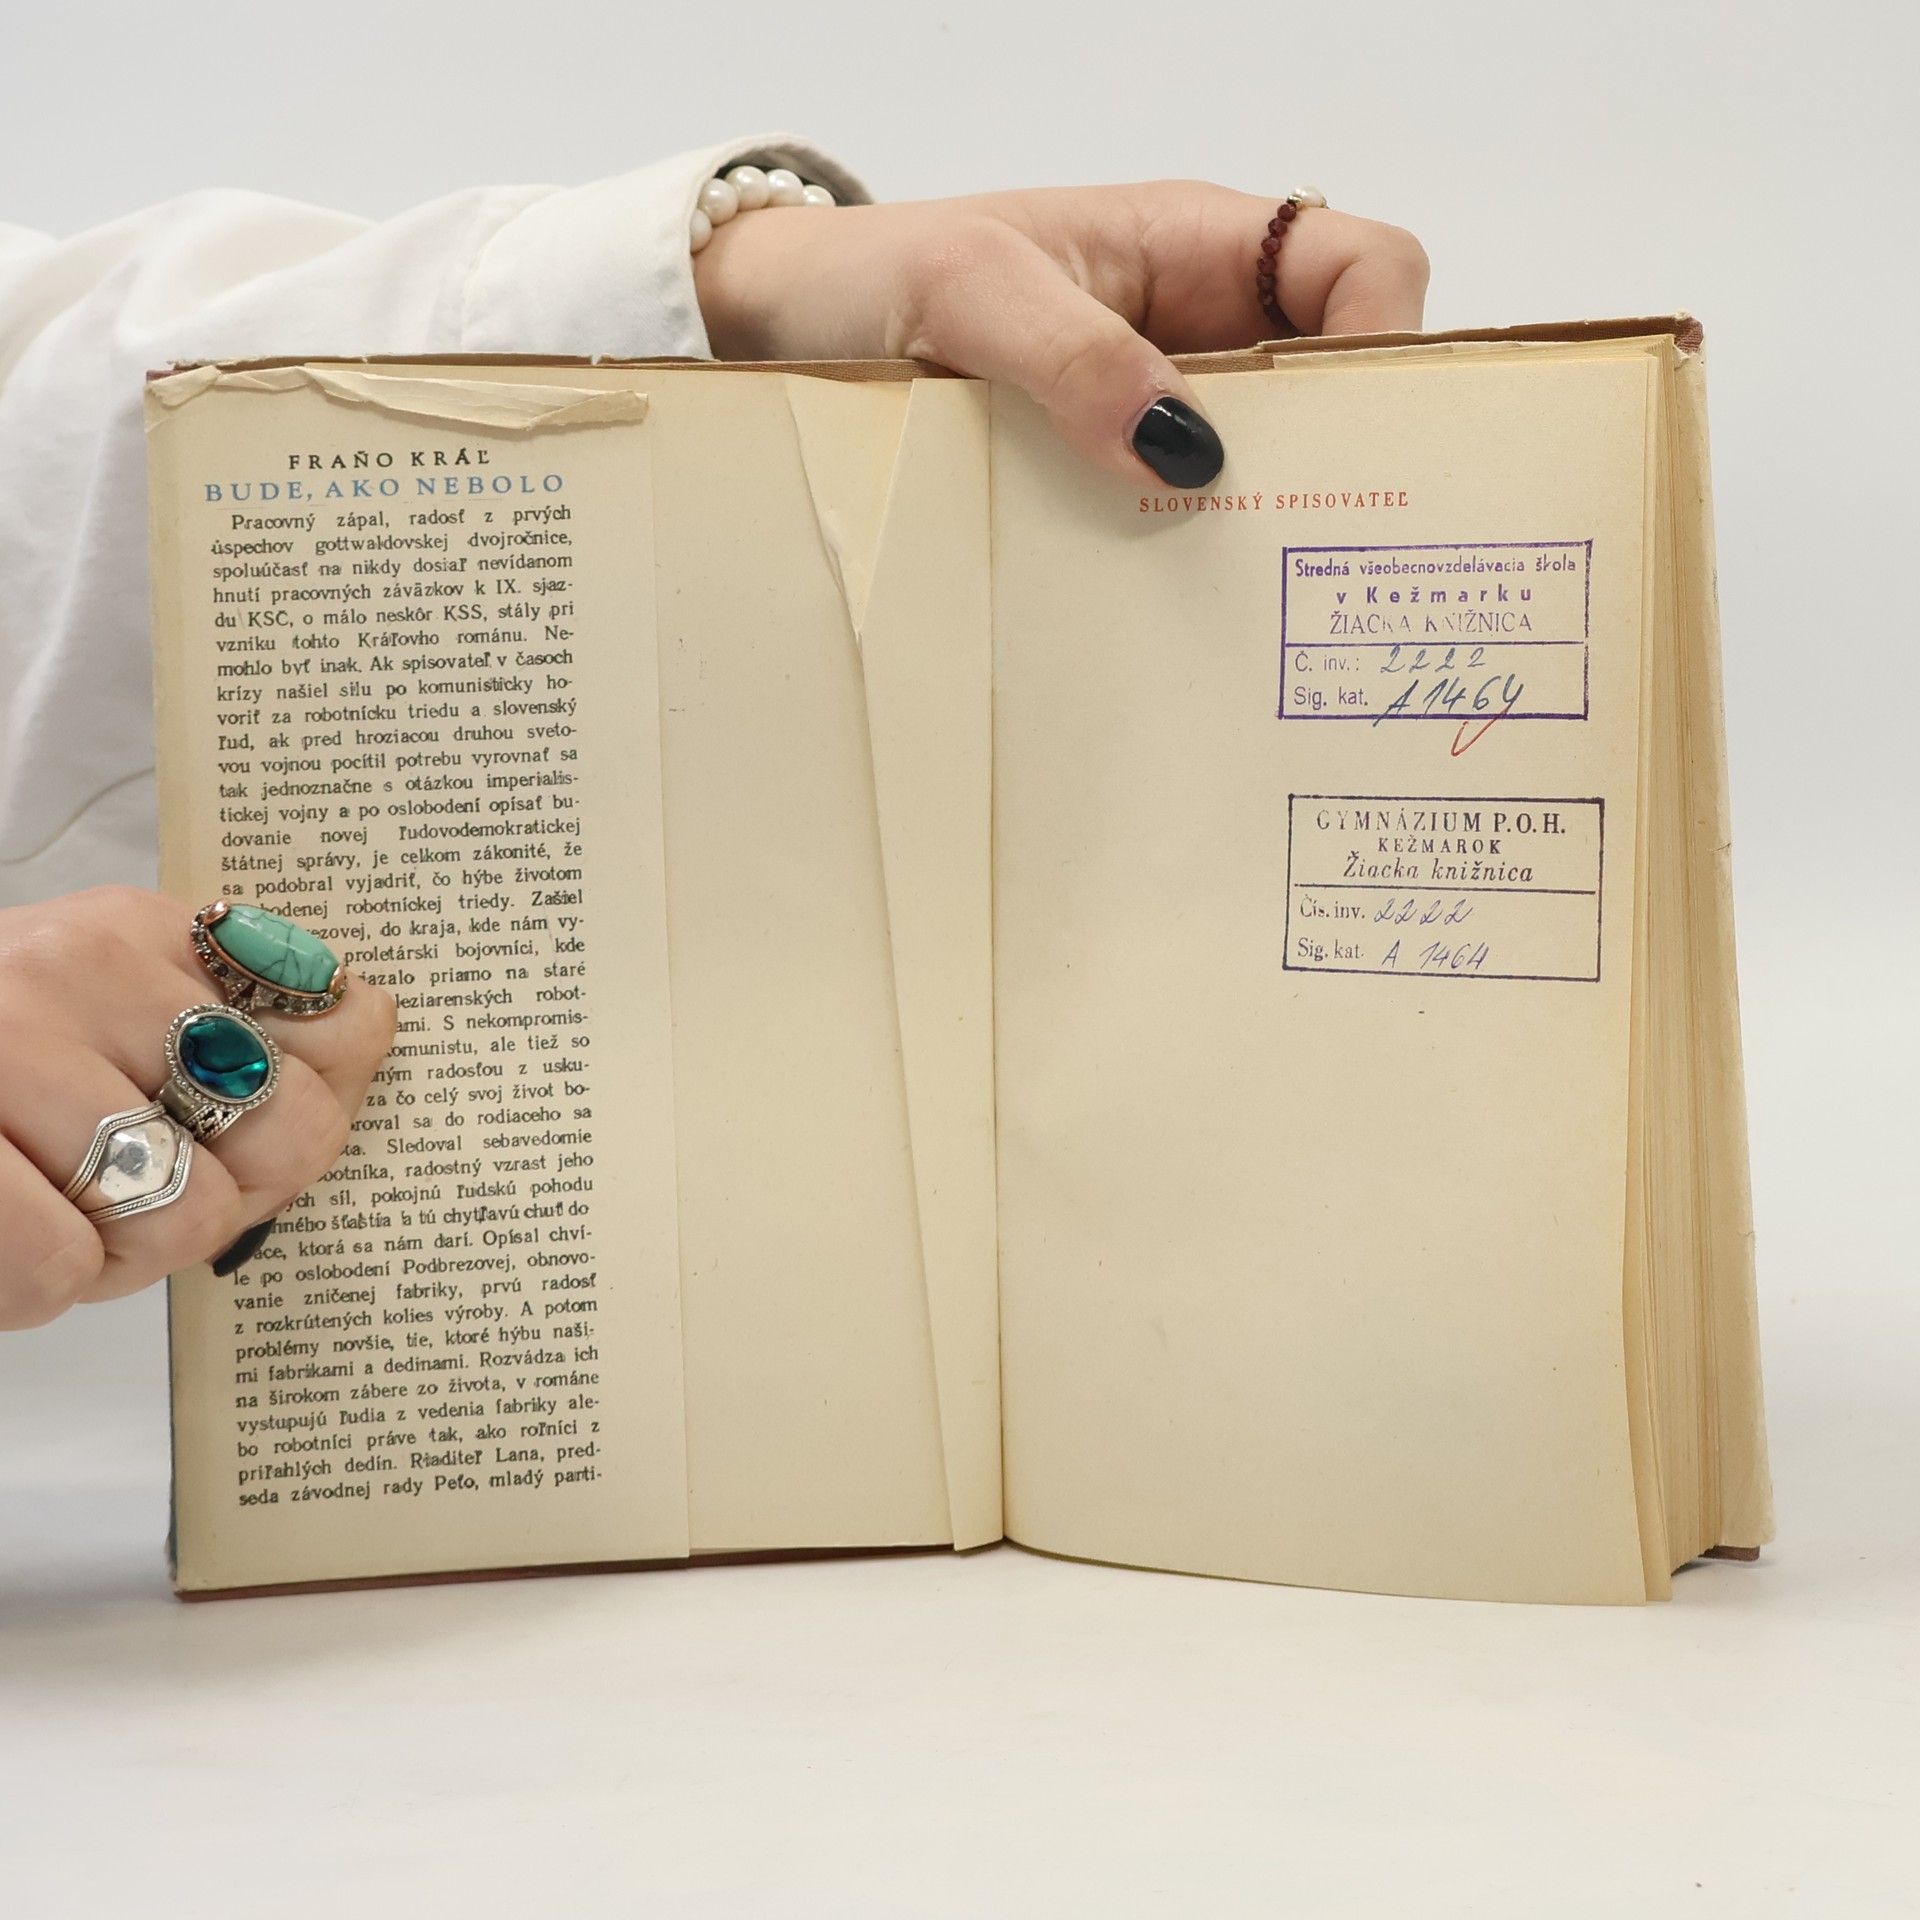 FRAŇO KRÁĽ
BUDE, AKO NEBOLO
Pracovný zápal, radosť z prvých
úspechov gottwaldovskej dvojročnice,
spoluúčasť na nikdy dosiaľ nevídanom
hnutí pracovných záväzkov k IX. sjaz-
du KSČ, o málo neskôr KSS, stály pri
vzniku tohto Kráľovho románu. Ne-
mohlo byť inak. Ak spisovateľ v časoch
krízy našiel silu po komunisticky ho-
voriť za robotnícku triedu a slovenský
ľud, ak pred hroziacou druhou sveto-
vou vojnou pocítil potrebu vyrovnať sa
tak jednoznačne s otázkou imperialis-
tickej vojny a po oslobodení opísať bu-
dovanie novej ľudovodemokratickej
štátnej správy, je celkom zákonité, že
sa podobral vyjadriť, čo hýbe životom
odenej robotníckej triedy. Zašiel
ezovej, do kraja, kde nám vy-
proletárski bojovníci, kde
iazalo priamo na staré
leziarenských robot-
ami. S nekompromis-
omunistu, ale tiež so
ným radosťou z usku-
za čo celý svoj život bo-
roval sa do rodiaceho sa
ta. Sledoval sebavedomie
botníka, radostný vzrast jeho
ých síl, pokojnú ľudskú pohodu
nného šťastia a tú chytľavú chuť do
áce, ktorá sa nám darí. Opísal chví-
le po oslobodení Podbrezovej, obnovo-
vanie zničenej fabriky, prvú radosť
z rozkrútených kolies výroby. A potom
problémy novšie, tie, ktoré hýbu naši-
mi fabrikami a dedinami. Rozvádza ich
na širokom zábere zo života, v románe
vystupujú ľudia z vedenia fabriky ale-
bo robotníci práve tak, ako roľníci z
priľahlých dedín. Riaditeľ Lana, pred-
seda závodnej rady Peťo, mladý parti-
SLOVENSKÝ SPISOVATEĽ
Stredná všeobecnovzdelávacia škola
v Kežmarku
ŽIACKA KNIŽNICA
Č. inv.: 2222
Sig. kat. A 1464
GYMNÁZIUM P.O.H.
KEŽMAROK
Žiacka knižnica
Čís. inv. 2222
Sig. kat. A 1464